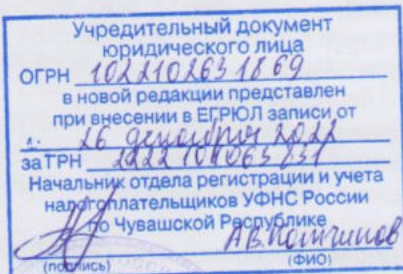 Учредительный документ
юридического лица
ОГРН 1022102631869
в новой редакции представлен
при внесении в ЕГРЮЛ записи от
26 декабря 2022
за ГРН
Начальник отдела регистрации и учета
налогоплательщиков УФНС России
по Чувашской Республике
А.В.
(подпись) (ФИО)